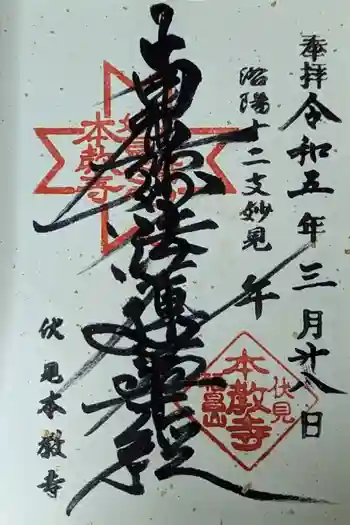 奉拝 令和五年 三月廿八日
洛陽十二支妙見 午
南無妙法蓮華経
伏見本教寺
本教寺
伏見
本教寺